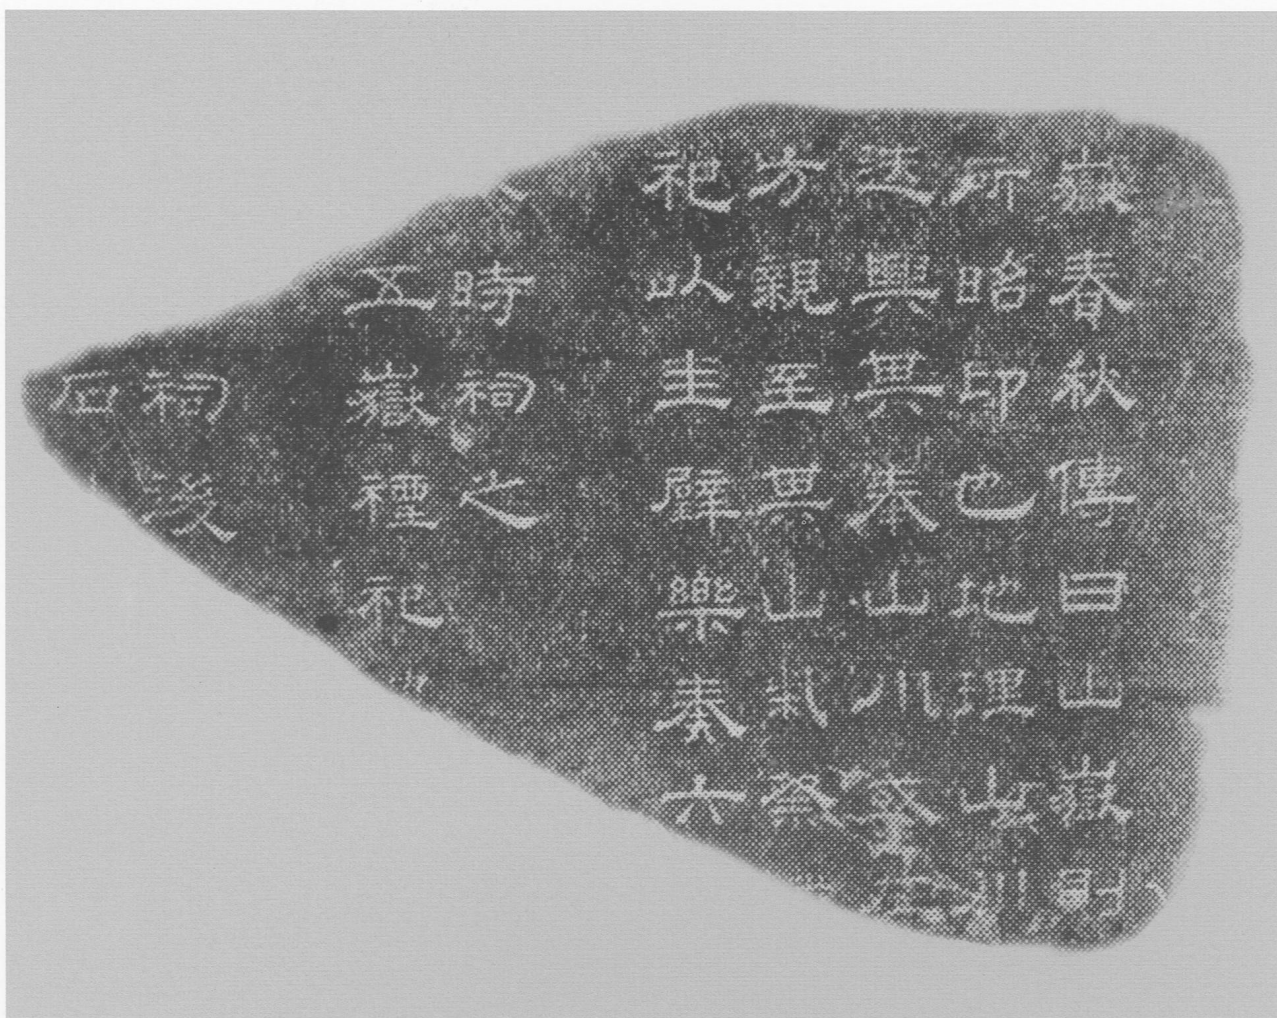 嶽春秋傳曰山嶽則
所昭卬也地理山川
迭興其奉山川
方親至其山川祭
祀以圭璧樂奏六
時祠之
五嶽禋祀
祠後
石